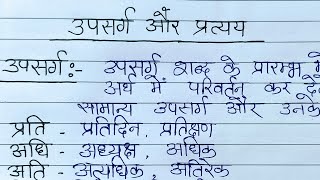 उपसर्ग और प्रत्यय
उपसर्ग:- उपसर्ग शब्द के प्रारम्भ में
अर्थ में परिवर्तन कर दे
सामान्य उपसर्ग और उनके
प्रति - प्रतिदिन, प्रतिक्षण
अधि - अध्यक्ष, अधिक
अति - अत्यधिक, अतिरेक